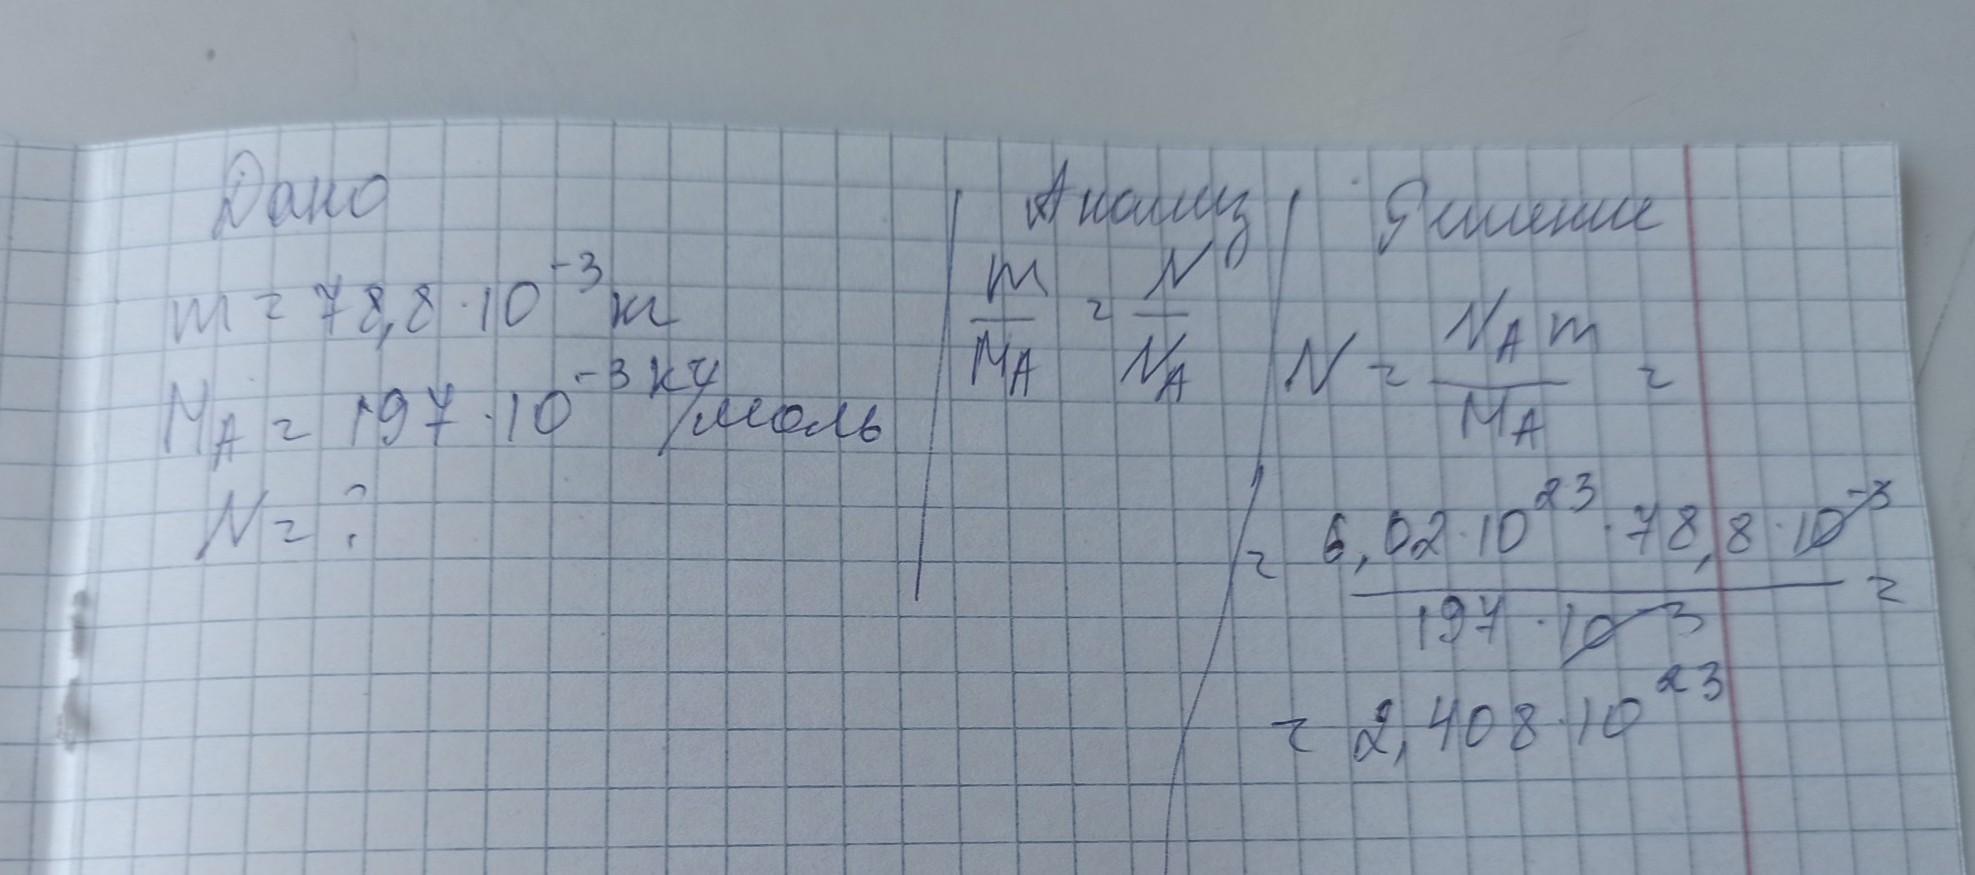 Дано
m = 78,8 · 10⁻³ кг
M_A = 197 · 10⁻³ кг/моль
N = ?
Анализ
m/M_A = N/N_A
Решение
N = N_A m/M_A =
= 6,02 · 10²³ · 78,8 · 10⁻³/197 · 10⁻³ =
= 2,408 · 10²³